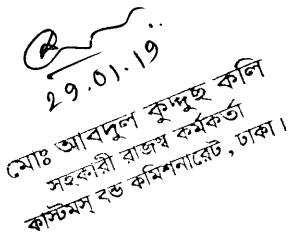 29.01.19
মোঃ আবদুল কুদ্দুছ কলি
সহকারী রাজস্ব কর্মকর্তা
কাস্টমস্ বন্ড কমিশনারেট, ঢাকা।